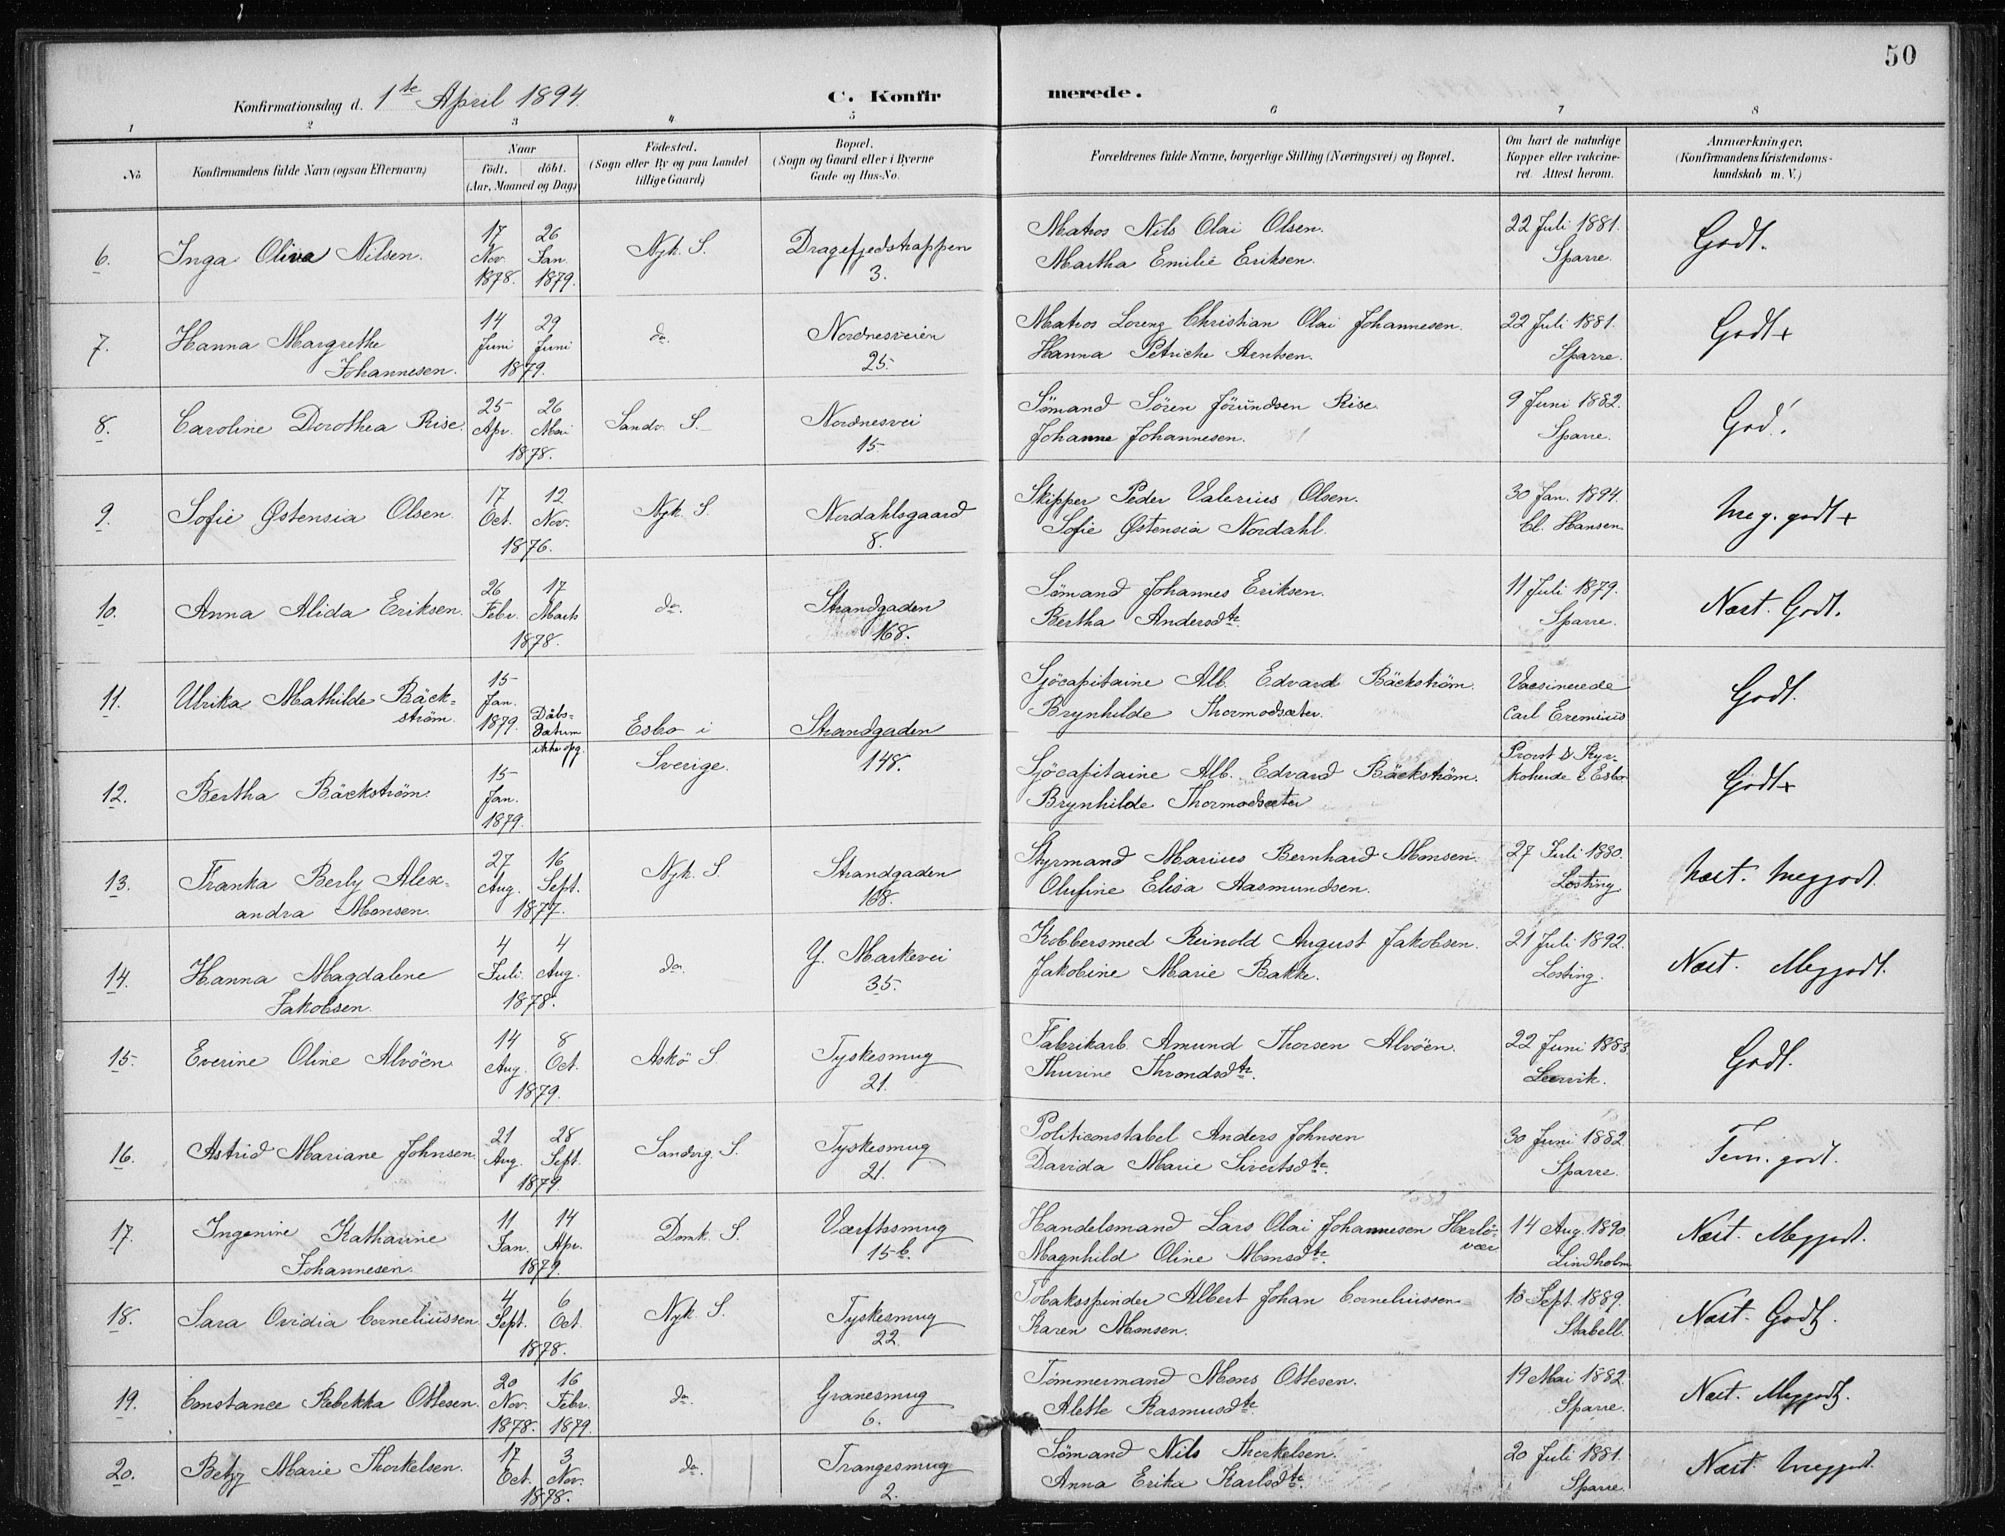 50
Konfirmationsdag d. 1ste April 1894.
C. Konfirmerede.
1 2 3 4 5 6 7 8
No
Konfirmandens fulde Navn (ogsaa Efternavn)
Naar
födt. döbt.
(Aar, Maaned og Dag)
Födested.
(Sogn eller By og paa Landet
tillige Gaard)
Bopæl.
(Sogn og Gaard eller i Byerne
Gade og Hus-No.
Forældrenes fulde Navne, borgerlige Stilling (Næringsvei) og Bopæl.
Om havt de naturlige
Kopper eller vakcine-
ret. Attest herom.
Anmærkninger.
(Konfirmandens Kristendoms-
kundskab m. V.)
6. Inga Oliva Nilsen. 17 Nov. 1878. 26 Jan. 1879. Nyk. S. Dragefjedstrappen 3. Matros Nils Olai Olsen. Martha Emilie Eriksen. 22 Juli 1881. Sparre. Godt.
7. Hanna Margrethe Johannesen. 14 Juni 29 Juni 1879. do. Nordnesveien 25. Matros Lorenz Christian Olai Johannesen. Hanna Petriche Arntsen. 22 Juli 1881. Sparre. Godt+
8. Caroline Dorothea Rise. 25 Apr. 26 Mai 1878. Sandv. S. Nordnesvei 15 Sømand Sören Jörundsen Rise. Johanne Johannesen. 9 Juni 1882. Sparre. God!
9. Sofie Østensia Olsen. 17 Oct. 12 Nov. 1876. Nyk. S. Nordahlsgaard 8. Skipper Peder Valerius Olsen. Sofie Østensia Nordahl. 30 Jan. 1894. Cl. Hansen. Meg. godt+
10. Anna Alida Eriksen. 26 Febr. 17 Marts 1878. do. Strandgaden 168. Sømand Johannes Eriksen. Bertha Andersdtr. 11 Juli 1879. Sparre. Næst. Godt.
11. Ulrika Mathilde Bäckström. 15 Jan. 1879. Dåbsdatum ikke opg. Esbo i Sverige. Strandgaden 148. Sjöcapitaine Alb. Edvard Bäckström. Brynhilde Thormodsæter. Vacsinerede Carl Eremiüs Godt.
12. Bertha Bäckström. 15 Jan. 1879. Sjöcapitaine Alb. Edvard Bäckström. Brynhilde Thormodsæter Provst & Kyrkoherde i Esbo Godt+
13. Franka Berly Alexandra Monsen. 27 Aug. 16 Sept. 1877. Nyk. S. Strandgaden 168. Styrmand Marius Bernhard Monsen. Olufine Elisa Aasmundsen. 27 Juli 1880. Losting. Næst. Megjodt.
14. Hanna Magdalene Jakobsen. 4 Juli. 4 Aug. 1878. do. Y. Markevei 35. Kobbersmed Reinold August Jakobsen. Jakobine Marie Bakke. 21 Juli 1892. Losting. Næst. Megjodt.
15. Everine Oline Alvöen. 14 Aug. 8 Oct. 1879. Askö S Tyskesmug 21. Fabrikarb. Amund Thorsen Alvöen. Thurine Throndsdtr. 22 Juni 1883. Leervik. Godt.
16. Astrid Mariane Johnsen. 21 Aug. 28 Sept. 1879. Sandvg. S. Tyskesmug 21. Politiconstabel Anders Johnsen Davida Marie Sivertsdtr. 30 Juni 1882. Sparre. Tem. godt.
17. Ingenine Katharine Johannesen. 11 Jan. 14 Apr. 1879. Domk. S. Værftssmug 15 b. Handelsmand Lars Olai Johannesen Herlövær Magnhild Oline Monsdtr. 14 Aug. 1890. Lindholm Næst. Megjodt.
18. Sara Ovidia Corneliüssen. 4 Sept. 6 Oct. 1878. Nyk. S. Tyskesmug 22. Tobaksspinder Albert Johan Corneliussen Karen Monsen. 18 Sept. 1889. Stabell. Næst. Godt.
19. Constance Rebekka Ottesen. 20 Nov. 1878. 16 Febr. 1879. do. Granesmug 6. Tømmermand Mons Ottesen. Alette Rasmusdtr. 19 Mai 1882. Sparre. Næst. Megjodt.
20. Betzy Marie Thorkelsen. 17 Oct. 3 Nov. 1878. do. Trangesmug 2. Sømand Nils Thorkelsen. Anna Erika Karlsdtr. 20 Juli 1881. Sparre. Næst. Megjodt.